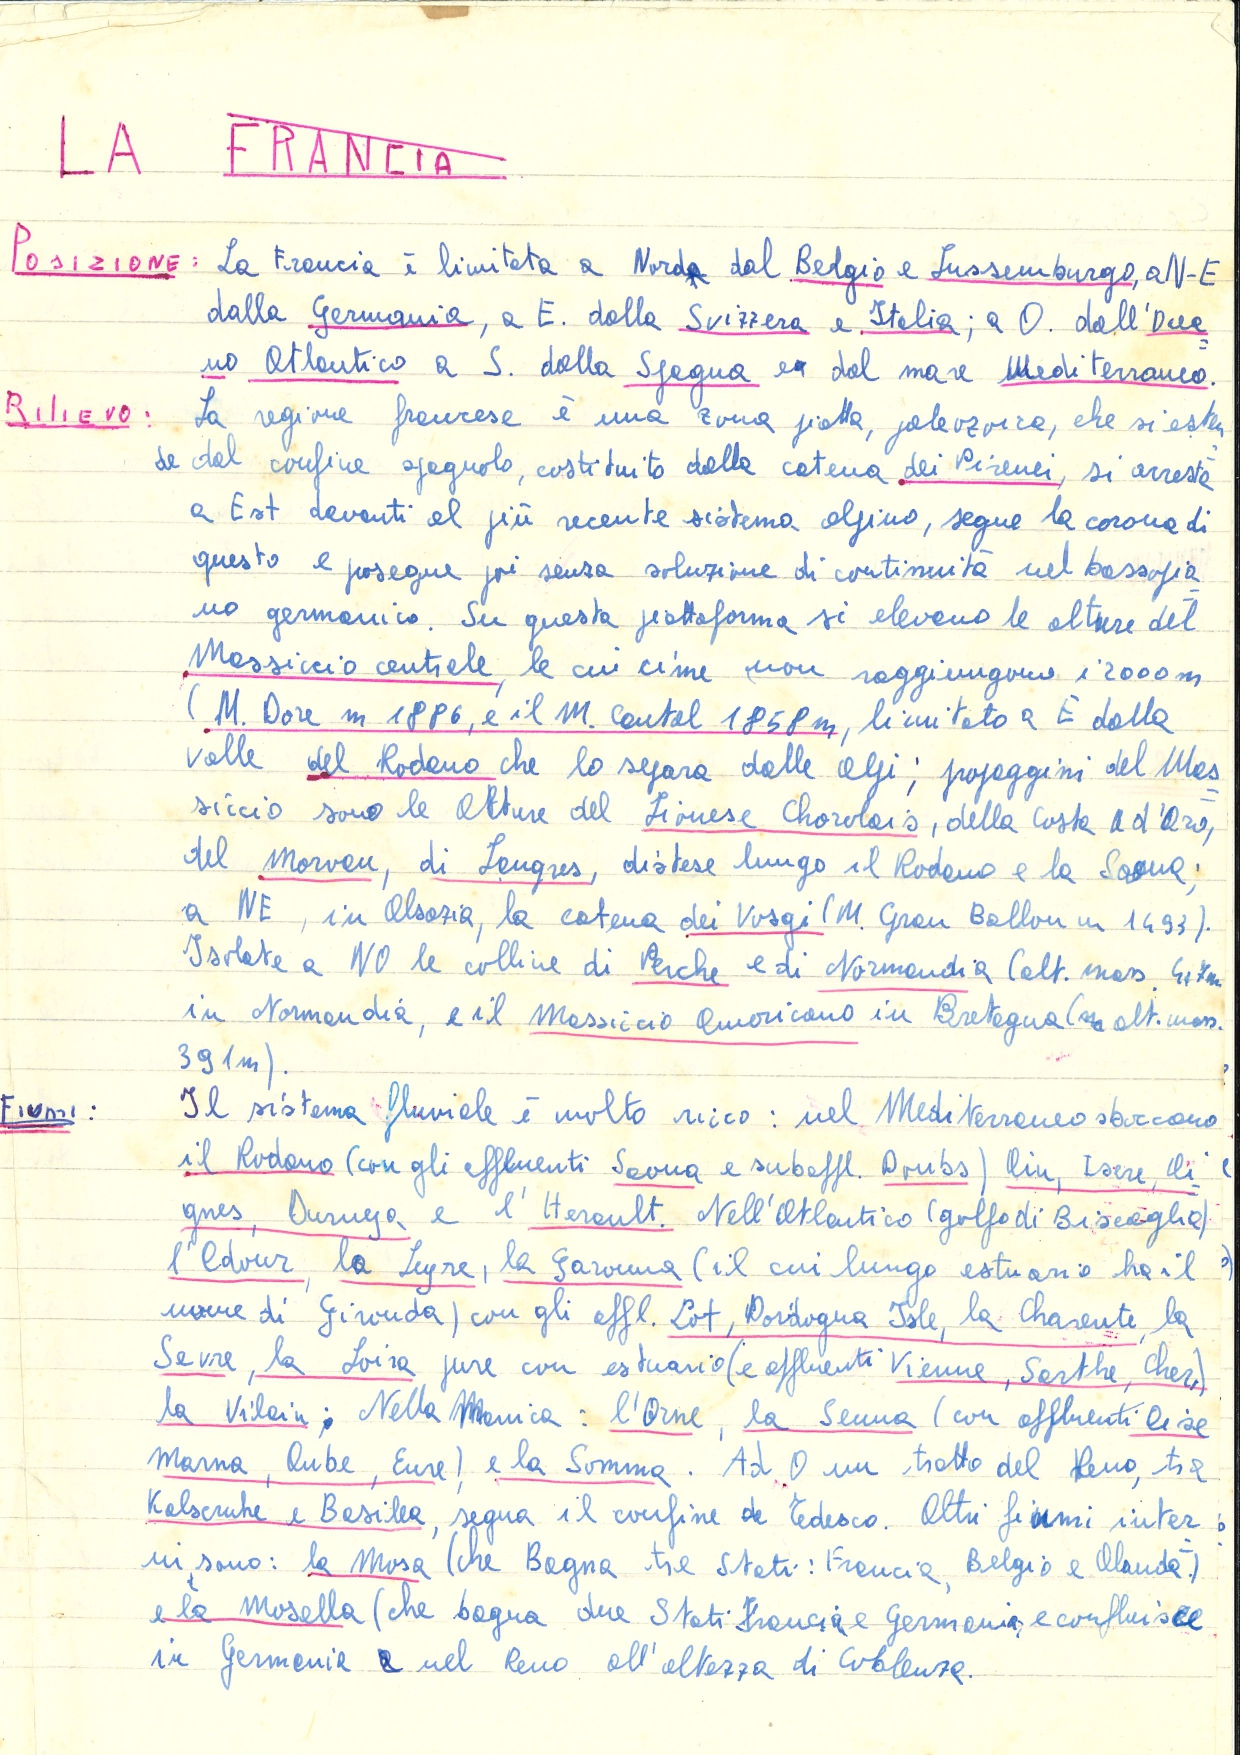 LA FRANCIA
POSIZIONE: La Francia è limitata a Nord dal Belgio e Lussemburgo, a N-E
dalla Germania, a E. dalla Svizzera e Italia; a O. dall'Ocea
no Atlantico a S. dalla Spagna e dal mare Mediterraneo.
RILIEVO: La regione francese è una zona piatta, paleozoica, che si esten
de dal confine spagnolo, costituito dalla catena dei Pirenei, si arresta
a Est davanti al più recente sistema alpino, segue la corona di
questo e posegue poi senza soluzione di continuità nel bassopia
no germanico. Su questa piattaforma si elevano le alture del
Massiccio centrale, le cui cime non raggiungono i 2000 m
(M. Dore m 1886, e il M. Cantal 1858 m, limitato a È dalla
valle del Rodano che lo separa dalle Alpi; propaggini del Mas
siccio sono le Alture del Lionese Charolais, della Costa d'Oro,
del Morvan, di Langres, distese lungo il Rodano e la Saona;
a NE, in Alsazia, la catena dei Vosgi (M. Gran Ballon m 1493).
Isolate a NO le colline di Perche e di Normandia (alt. mass. 417m
in Normandia, e il Massiccio Amoricano in Bretagna (alt. mass.
391m).
FIUMI: Il sistema fluviale è molto ricco: nel Mediterraneo sboccano
il Rodano (con gli affluenti Saona e subaffl. Doubs) Ain, Isere, Ai
gues, Durnega e l'Herault. Nell'Atlantico (golfo di Biscaglia)
l'Adour, la Leyre, la Garonna (il cui lungo estuario ha il
nome di Gironda) con gli affl. Lot, Dordogna Isle, la Charente, la
Sevre, la Loira pure con estuario (e affluenti Vienne, Sarthe, Cher,)
la Vilain; Nella Manica: l'Orne, la Senna (con affluenti Oise
Marna, Aube, Eure) e la Somma. Ad O un tratto del Reno, tra
Kalscruhe e Basilea, segna il confine Tedesco. Altri fiumi inter
ni sono: la Mosa (che Bagna tre Stati: Francia, Belgio e Olanda)
e la Mosella (che bagna due Stati Francia e Germania, e confluisce
in Germania nel Reno all'altezza di Coblenza.